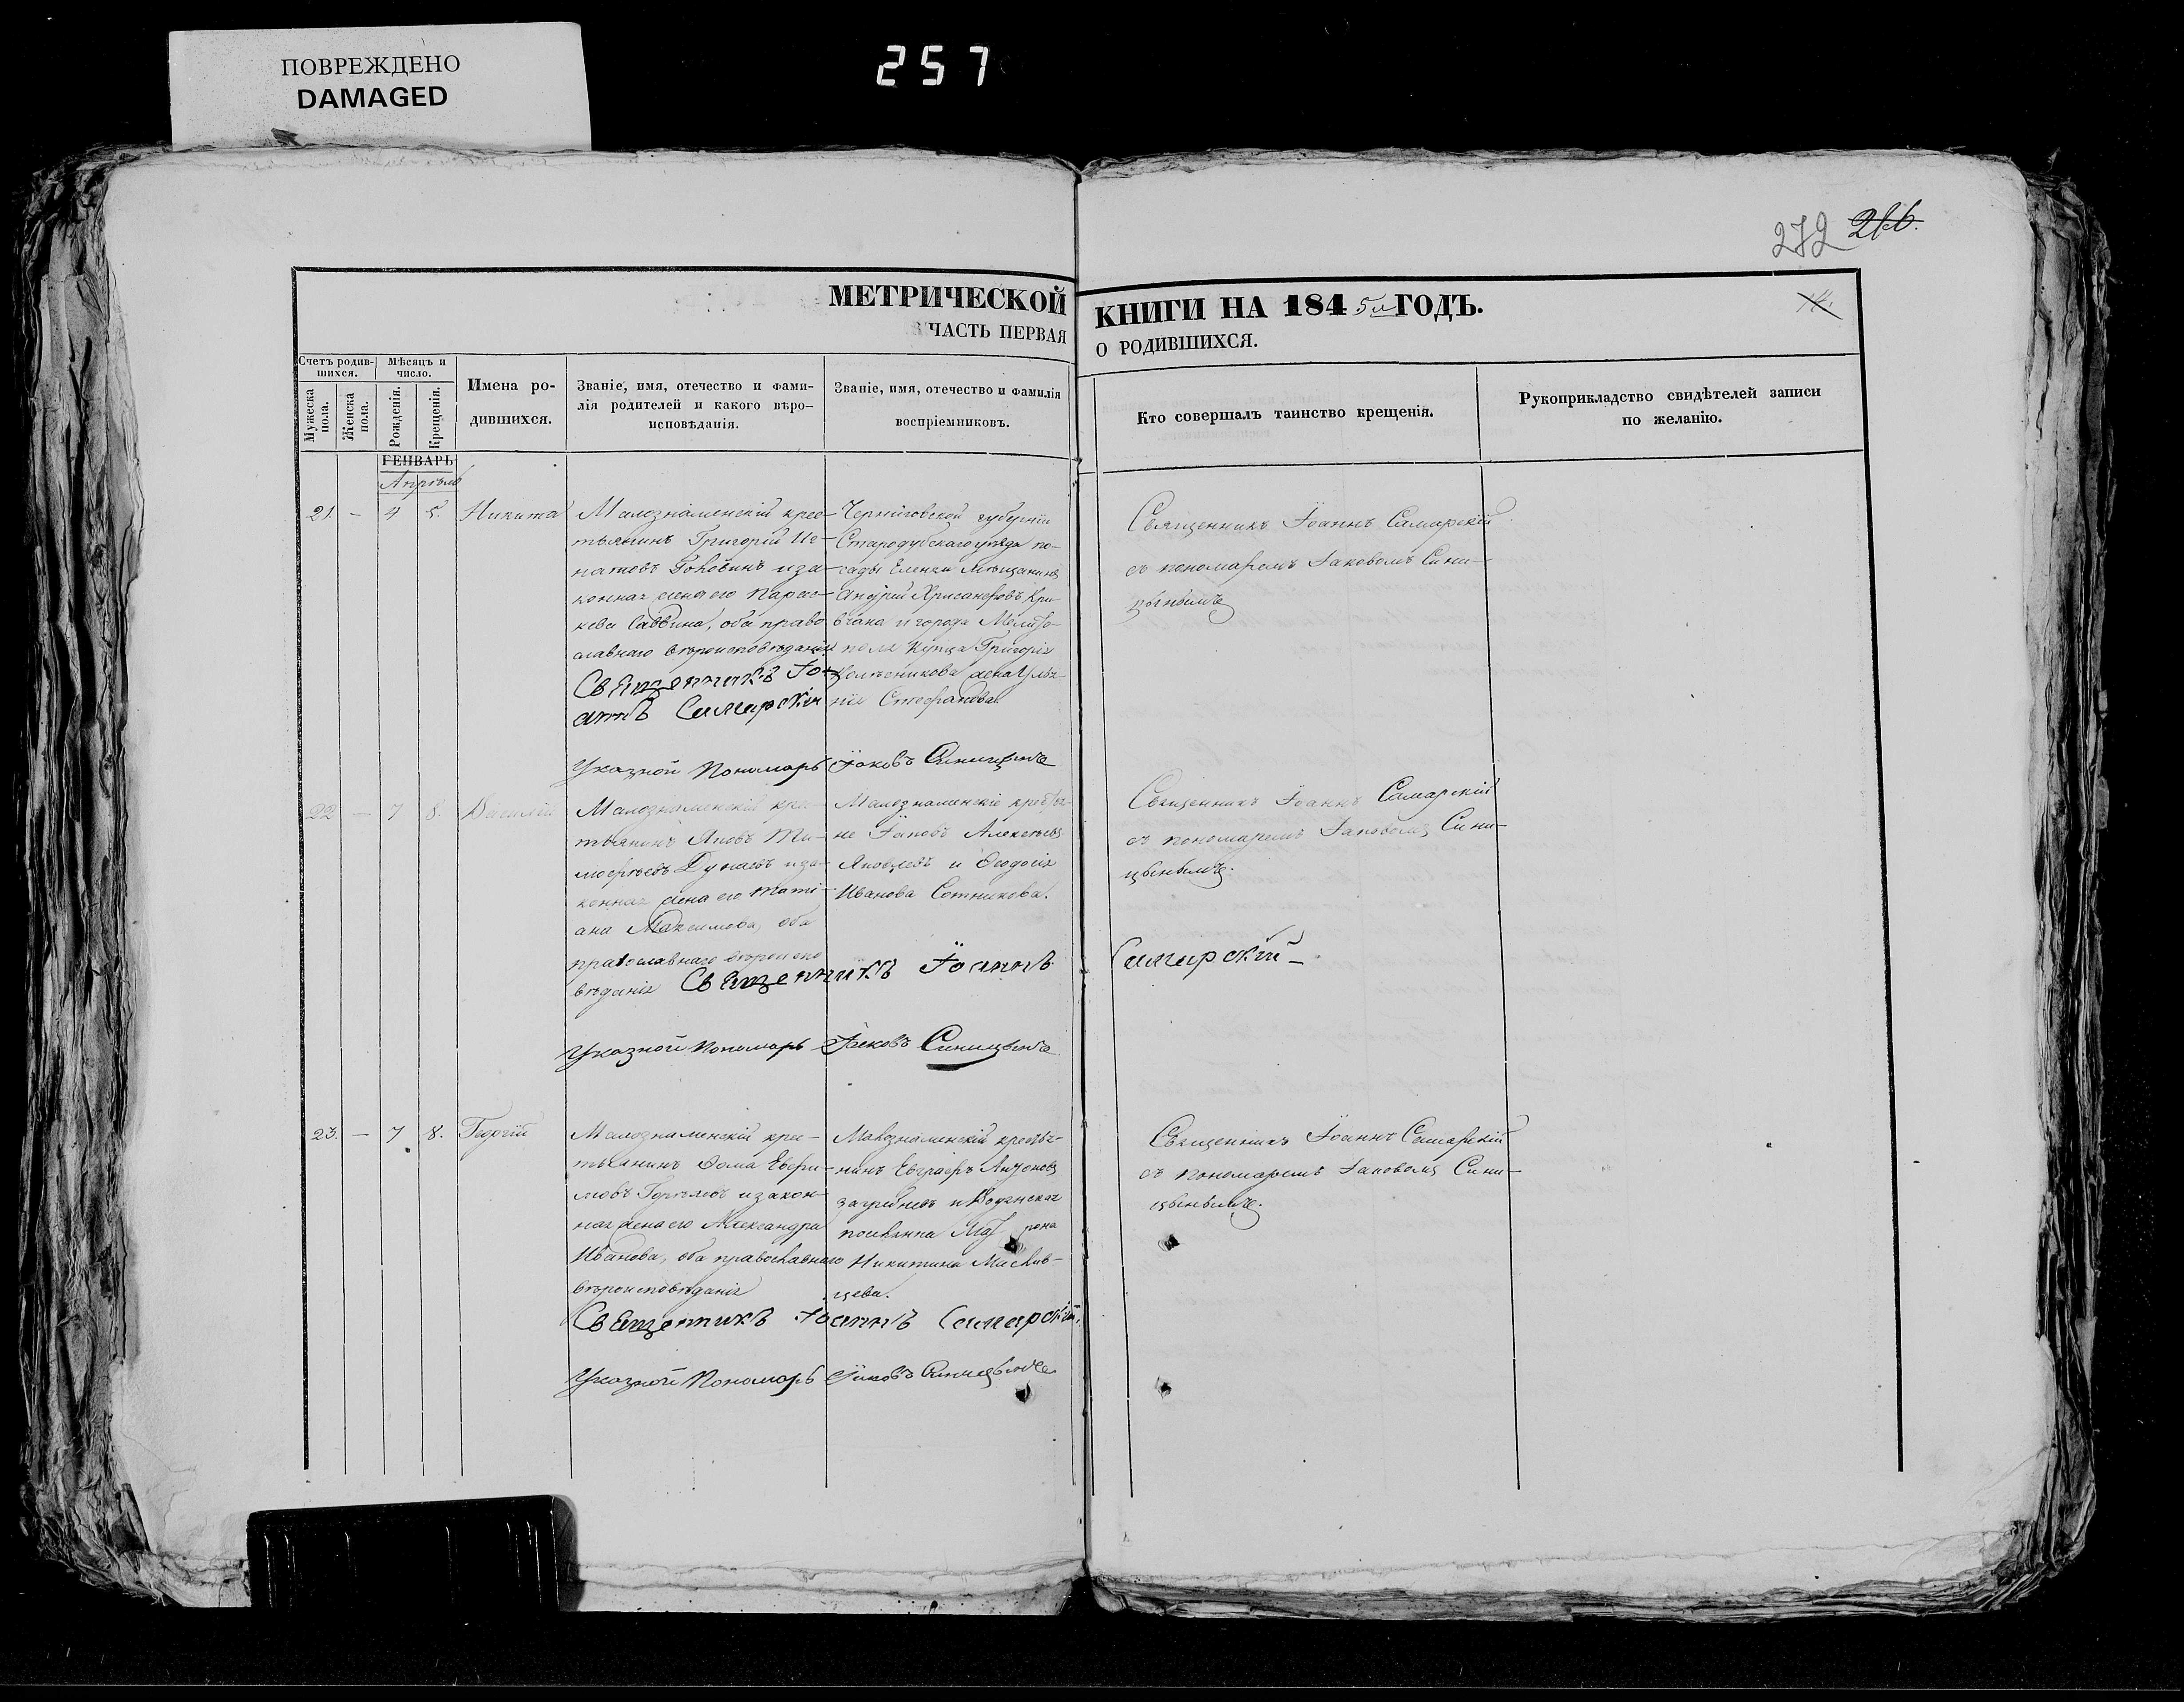 ПОВРЕЖДЕНО
DAMAGED
257
272 266.
МЕТРИЧЕСКОЙ КНИГИ НА 1845й ГОДЪ.
ЧАСТЬ ПЕРВАЯ О РОДИВШИХСЯ.
Счетъ родив-
шихся.
Мужеска пола.
Женска пола.
Мѣсяцъ и
число.
Рожденія.
Крещенія.
Имена ро-
дившихся.
Званіе, имя, отечество и фами-
лія родителей и какого вѣро-
исповѣданія.
Званіе, имя, отечество и фамилія
воспріемниковъ.
Кто совершалъ таинство крещенія.
Рукоприкладство свидѣтелей записи
по желанію.
ГЕНВАРЬ
Апрѣль
21. — 4 5. Никита
Малознаменскій крес-
тьянинъ Григорій Иг-
натовъ и за-
конная жена его Парас-
кева Саввина, оба право
славнаго вѣроисповѣданія
Священникъ Іо-
аннъ Самарскій
Черниговской губерніи
Стародубскаго уѣзда по-
сады Еленки мѣщанинъ
Андрей Хрисанфовъ Кри-
и города Мелито-
поля купца Григорія
жена Улья-
нія Стефанова.
Указной Пономарь Іаковъ Синицынъ
Священникъ Іоаннъ Самарскій
съ пономаремъ Іаковомъ Сини-
цынымъ
22 — 7 8. Василій
Малознаменскій крес-
тьянинъ Яковъ Ти-
мофѣевъ Дунаевъ и за-
конная жена его Тати-
ана Максимова, оба
православнаго вѣроиспо
вѣданія Священникъ Іоаннъ Самарскій
Малознаменскіе крестья-
не Іаковъ Алексѣевъ
Яковлевъ и Ѳеодосія
Иванова Сотникова.
Указной Пономарь Іаковъ Синицынъ
Священникъ Іоаннъ Самарскій
съ пономаремъ Іаковомъ Сини-
цынымъ.
23. — 7 8. Георгій
Малознаменскій крес-
тьянинъ Ѳома Евфи-
мовъ и закон-
ная жена его Александра
Иванова, оба православнаго
вѣроисповѣданія
Священникъ Іоаннъ Самарскій
Малознаменскій крестья-
нинъ Евграфъ Антоновъ
и Водянская
поселянка Мат рона
Никитина Маслов-
цева.
Указной Пономарь Іаковъ Синицынъ
Священникъ Іоаннъ Самарскій
съ пономаремъ Іаковомъ Сини-
цынымъ.